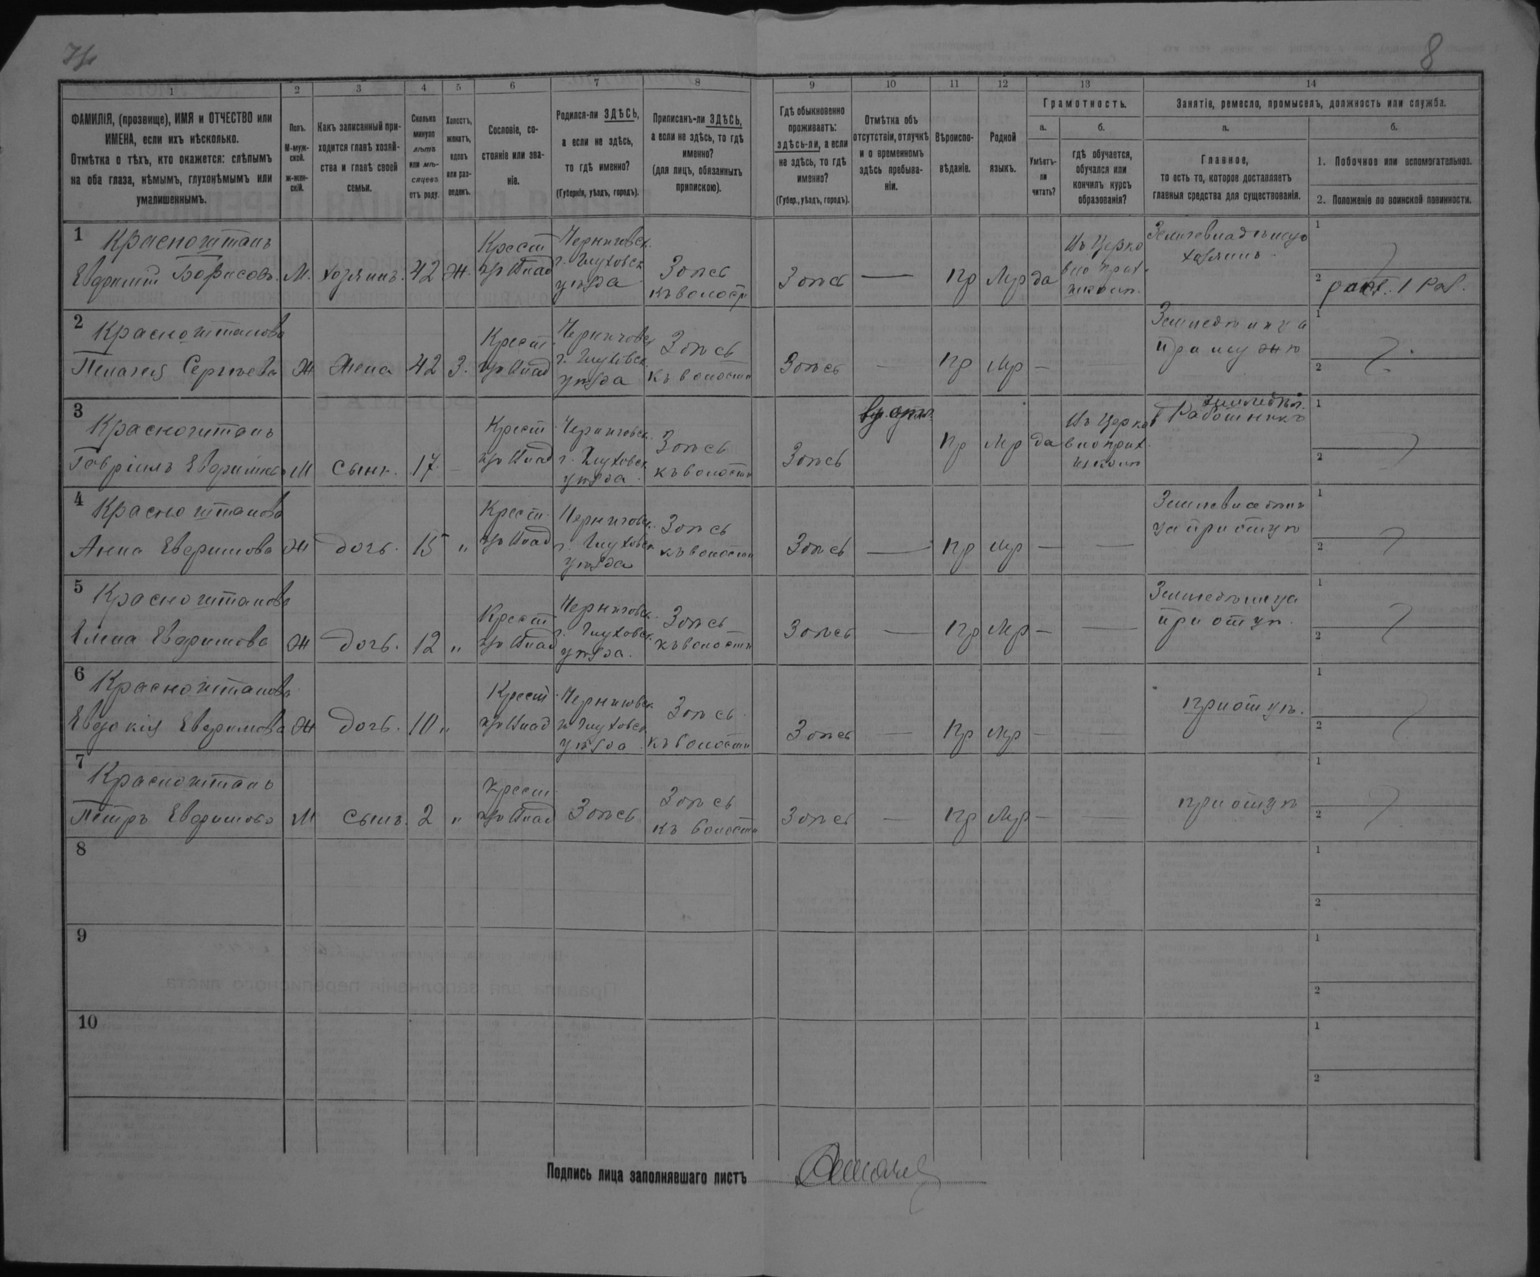 8
1
2
3
4
5
6
7
8
9
10
11
12
13
14
ФАМИЛІЯ, (прозвище), ИМЯ и ОТЧЕСТВО или
ИМЕНА, если ихъ нѣсколько.
Отмѣтка о тѣхъ, кто окажется: слѣпымъ
на оба глаза, нѣмымъ, глухонѣмымъ или
умалишеннымъ.
Полъ.
М-муж-
ской.
ж-жен-
скій.
Какъ записанный при-
ходится главѣ хозяй-
ства и главѣ своей
семьи.
Сколько
минуло
лѣтъ
или мѣ-
сяцевъ
отъ роду.
Холостъ,
женатъ,
вдовъ
или раз-
веденъ.
Сословіе, со-
стояніе или зва-
ніе.
Родился-ли ЗДѢСЬ,
а если не здѣсь,
то гдѣ именно?
(Губернія, уѣздъ, городъ).
Приписанъ-ли ЗДѢСЬ,
а если не здѣсь, то гдѣ
именно?
(для лицъ, обязанныхъ
припискою).
Гдѣ обыкновенно
проживаетъ:
здѣсь-ли, а если
не здѣсь, то гдѣ
именно?
(Губер., уѣздъ, городъ).
Отмѣтка объ
отсутствіи, отлучкѣ
и о временномъ
здѣсь пребыва-
ніи.
Вѣроиспо-
вѣданіе.
Родной
языкъ.
Грамотность.
а.
Умѣетъ-
ли
читать?
б.
гдѣ обучается,
обучался или
кончилъ курсъ
образованія?
Занятіе, ремесло, промыселъ, должность или служба.
а.
Главное,
то есть то, которое доставляетъ
главныя средства для существованія.
б.
1. Побочное или вспомогательное.
2. Положеніе по воинской повинности.
1
Красноштанъ
Евфимій Борисовъ
М.
хозяинъ.
42
Ж.
Крест
Черниговск.
г. Глуховск
уѣзда
Здѣсь
къ волости
Здѣсь
—
Пр
Мр
да
Въ Церко
школѣ
хозяинъ
1
2
2
Красноштанова
Пелагея Сергѣева
Ж
Жена
42
З.
Крест
Черниговск
г. Глуховск
уѣзда
Здѣсь
къ волости
Здѣсь
—
Пр
Мр
—
при мужѣ
1
2
3
Красноштанъ
Гавріилъ Евфимовъ
М
сынъ.
17
–
Крест
Черниговск.
г. Глуховск
уѣзда
Здѣсь
къ волости
Здѣсь
Пр
Мр
да
Въ Церко
школѣ
Работникъ
1
2
4
Красноштанова
Анна Евфимова
Ж
дочь.
15
"
Крест
Черниговск.
г. Глуховск
уѣзда
Здѣсь
къ волости
Здѣсь
—
Пр
Мр
—
—
при отцѣ
1
2
5
Красноштанова
Елена Евфимова
Ж
дочь.
12
"
Крест
Черниговск.
г. Глуховск
уѣзда
Здѣсь
къ волости
Здѣсь
—
Пр
Мр
—
—
при отцѣ
1
2
6
Красноштанова
Евдокія Евфимова
Ж
дочь.
10
"
Крест
Черниговск
г. Глуховск
уѣзда
Здѣсь
къ волости
Здѣсь
—
Пр
Мр
—
—
при отцѣ
1
2
7
Красноштанъ
Петръ Евфимовъ
М
сынъ.
2
"
Крест
Здѣсь
Здѣсь
къ волости
Здѣсь
—
Пр
Мр
—
—
при отцѣ
1
2
8
1
2
9
1
2
10
1
2
Подпись лица заполнявшаго листъ